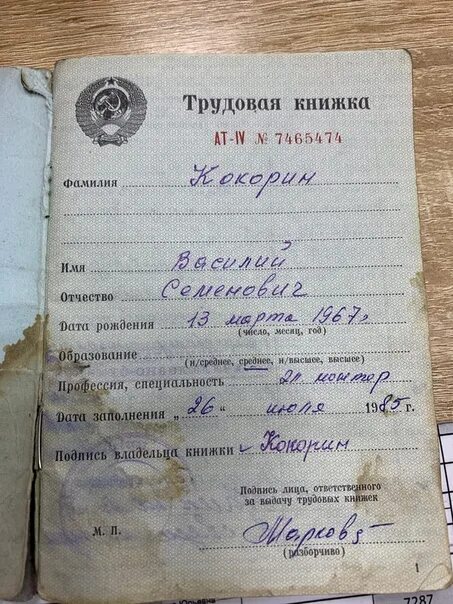 Трудовая книжка
АТ-IV № 7465474
Фамилия Кокорин
Имя Василий
Отчество Семенович
Дата рождения 13 марта 1967г
(число, месяц, год)
Образование
(н/среднее, среднее, н/высшее, высшее)
Профессия, специальность эл монтер
Дата заполнения „ 26 “ июля 1985 г.
Подпись владельца книжки Кокорин
Подпись лица, ответственного
за выдачу трудовых книжек
М. П.
(разборчиво)
1
7287